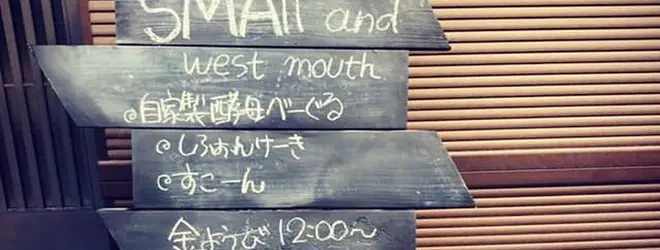 SMAll and
west mouth
自家製酵母べーぐる
しふぉんけーき
すこーん
金ようび 12:00～